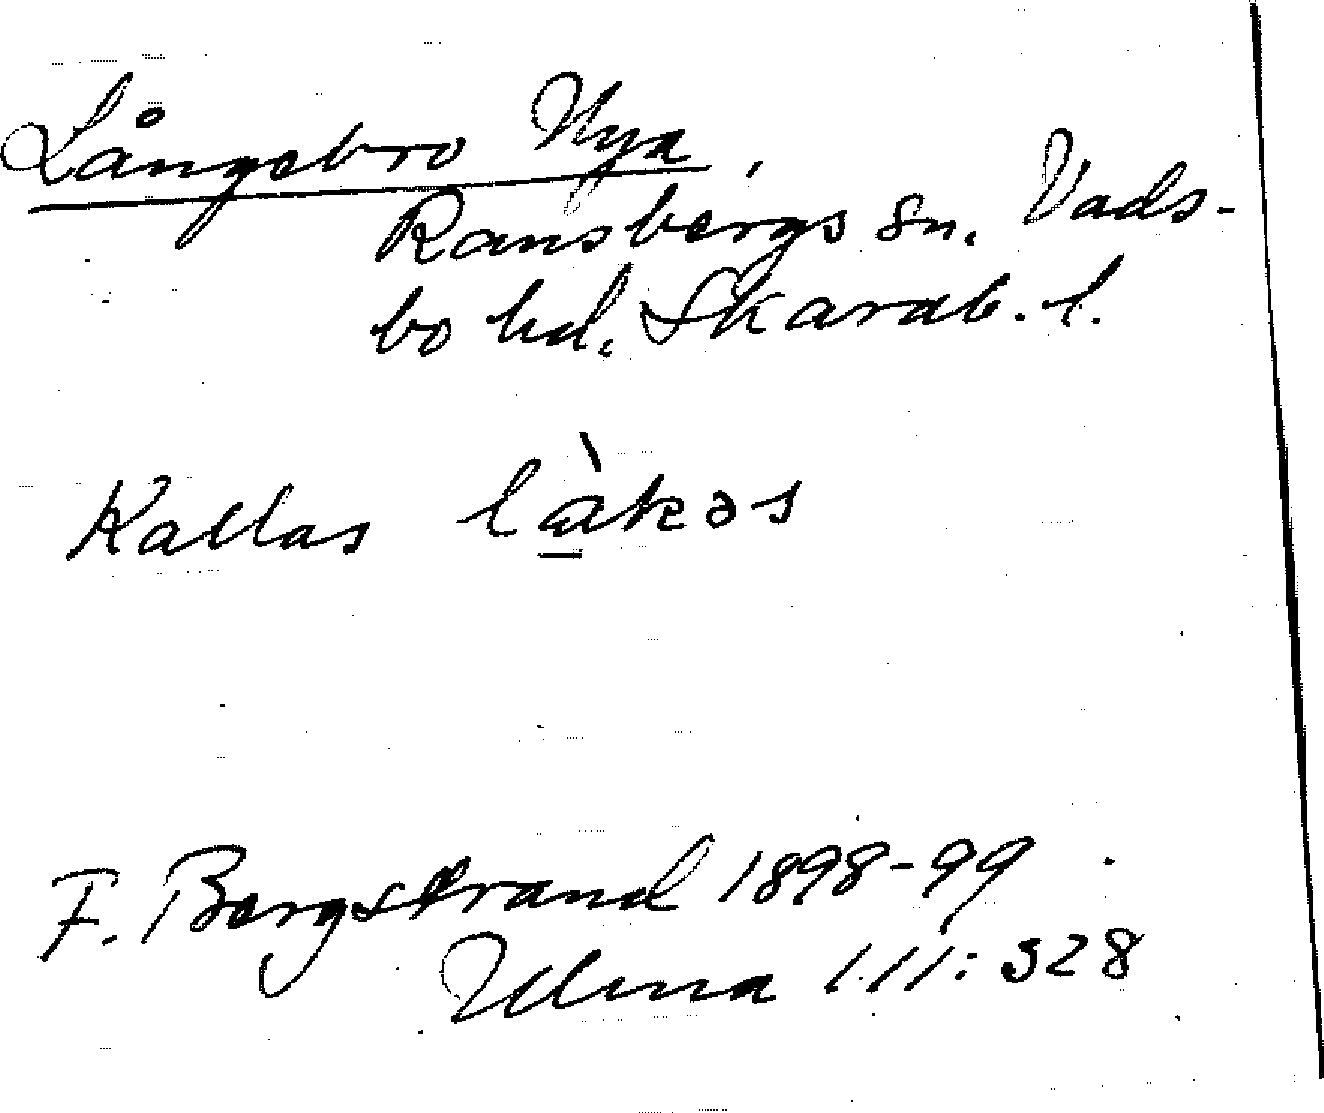 Långebro Nya,
Ransbergs sn. Vads-
bo hd. Skarab. l.
Kallas là̱kəs
F. Bergstrand 1898-99
Ulma 111:328